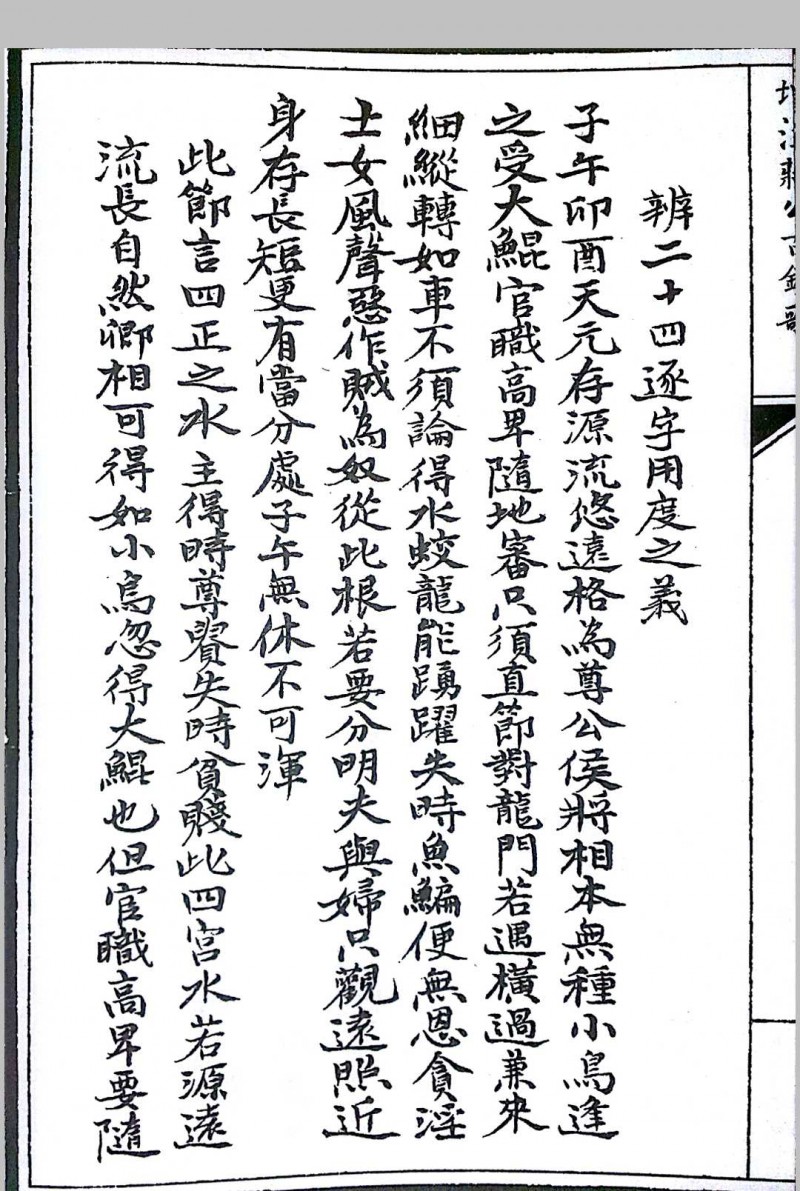 辨二十四逐字用度之義
子午卯酉天元存源流悠遠格為尊公侯將相本無種小鳥逢
之受大鯤官職高卑隨地審只須直節對龍門若遇橫過兼來
細縱轉如車不須論得水蛟龍能踴躍失時魚鯿便無恩貪淫
士女風聲惡作賊為奴從此根若要分明夫與婦只觀遠照近
身存長短更有當分處子午無休不可渾
此節言四正之水主得時尊貴失時貧賤此四宮水若源遠
流長自然卿相可得如小鳥忽得大鯤也但官職高卑要隨